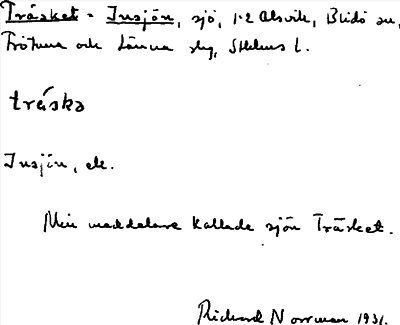 Träsket = Insjön, sjö, 1-2 Alsvik, Blidö sn,
Frötuna och Länna slg, Sthlms l.
träskə
Insjön, ek.
Min meddelare kallade sjön Träsket.
Richard Norrman 1931.